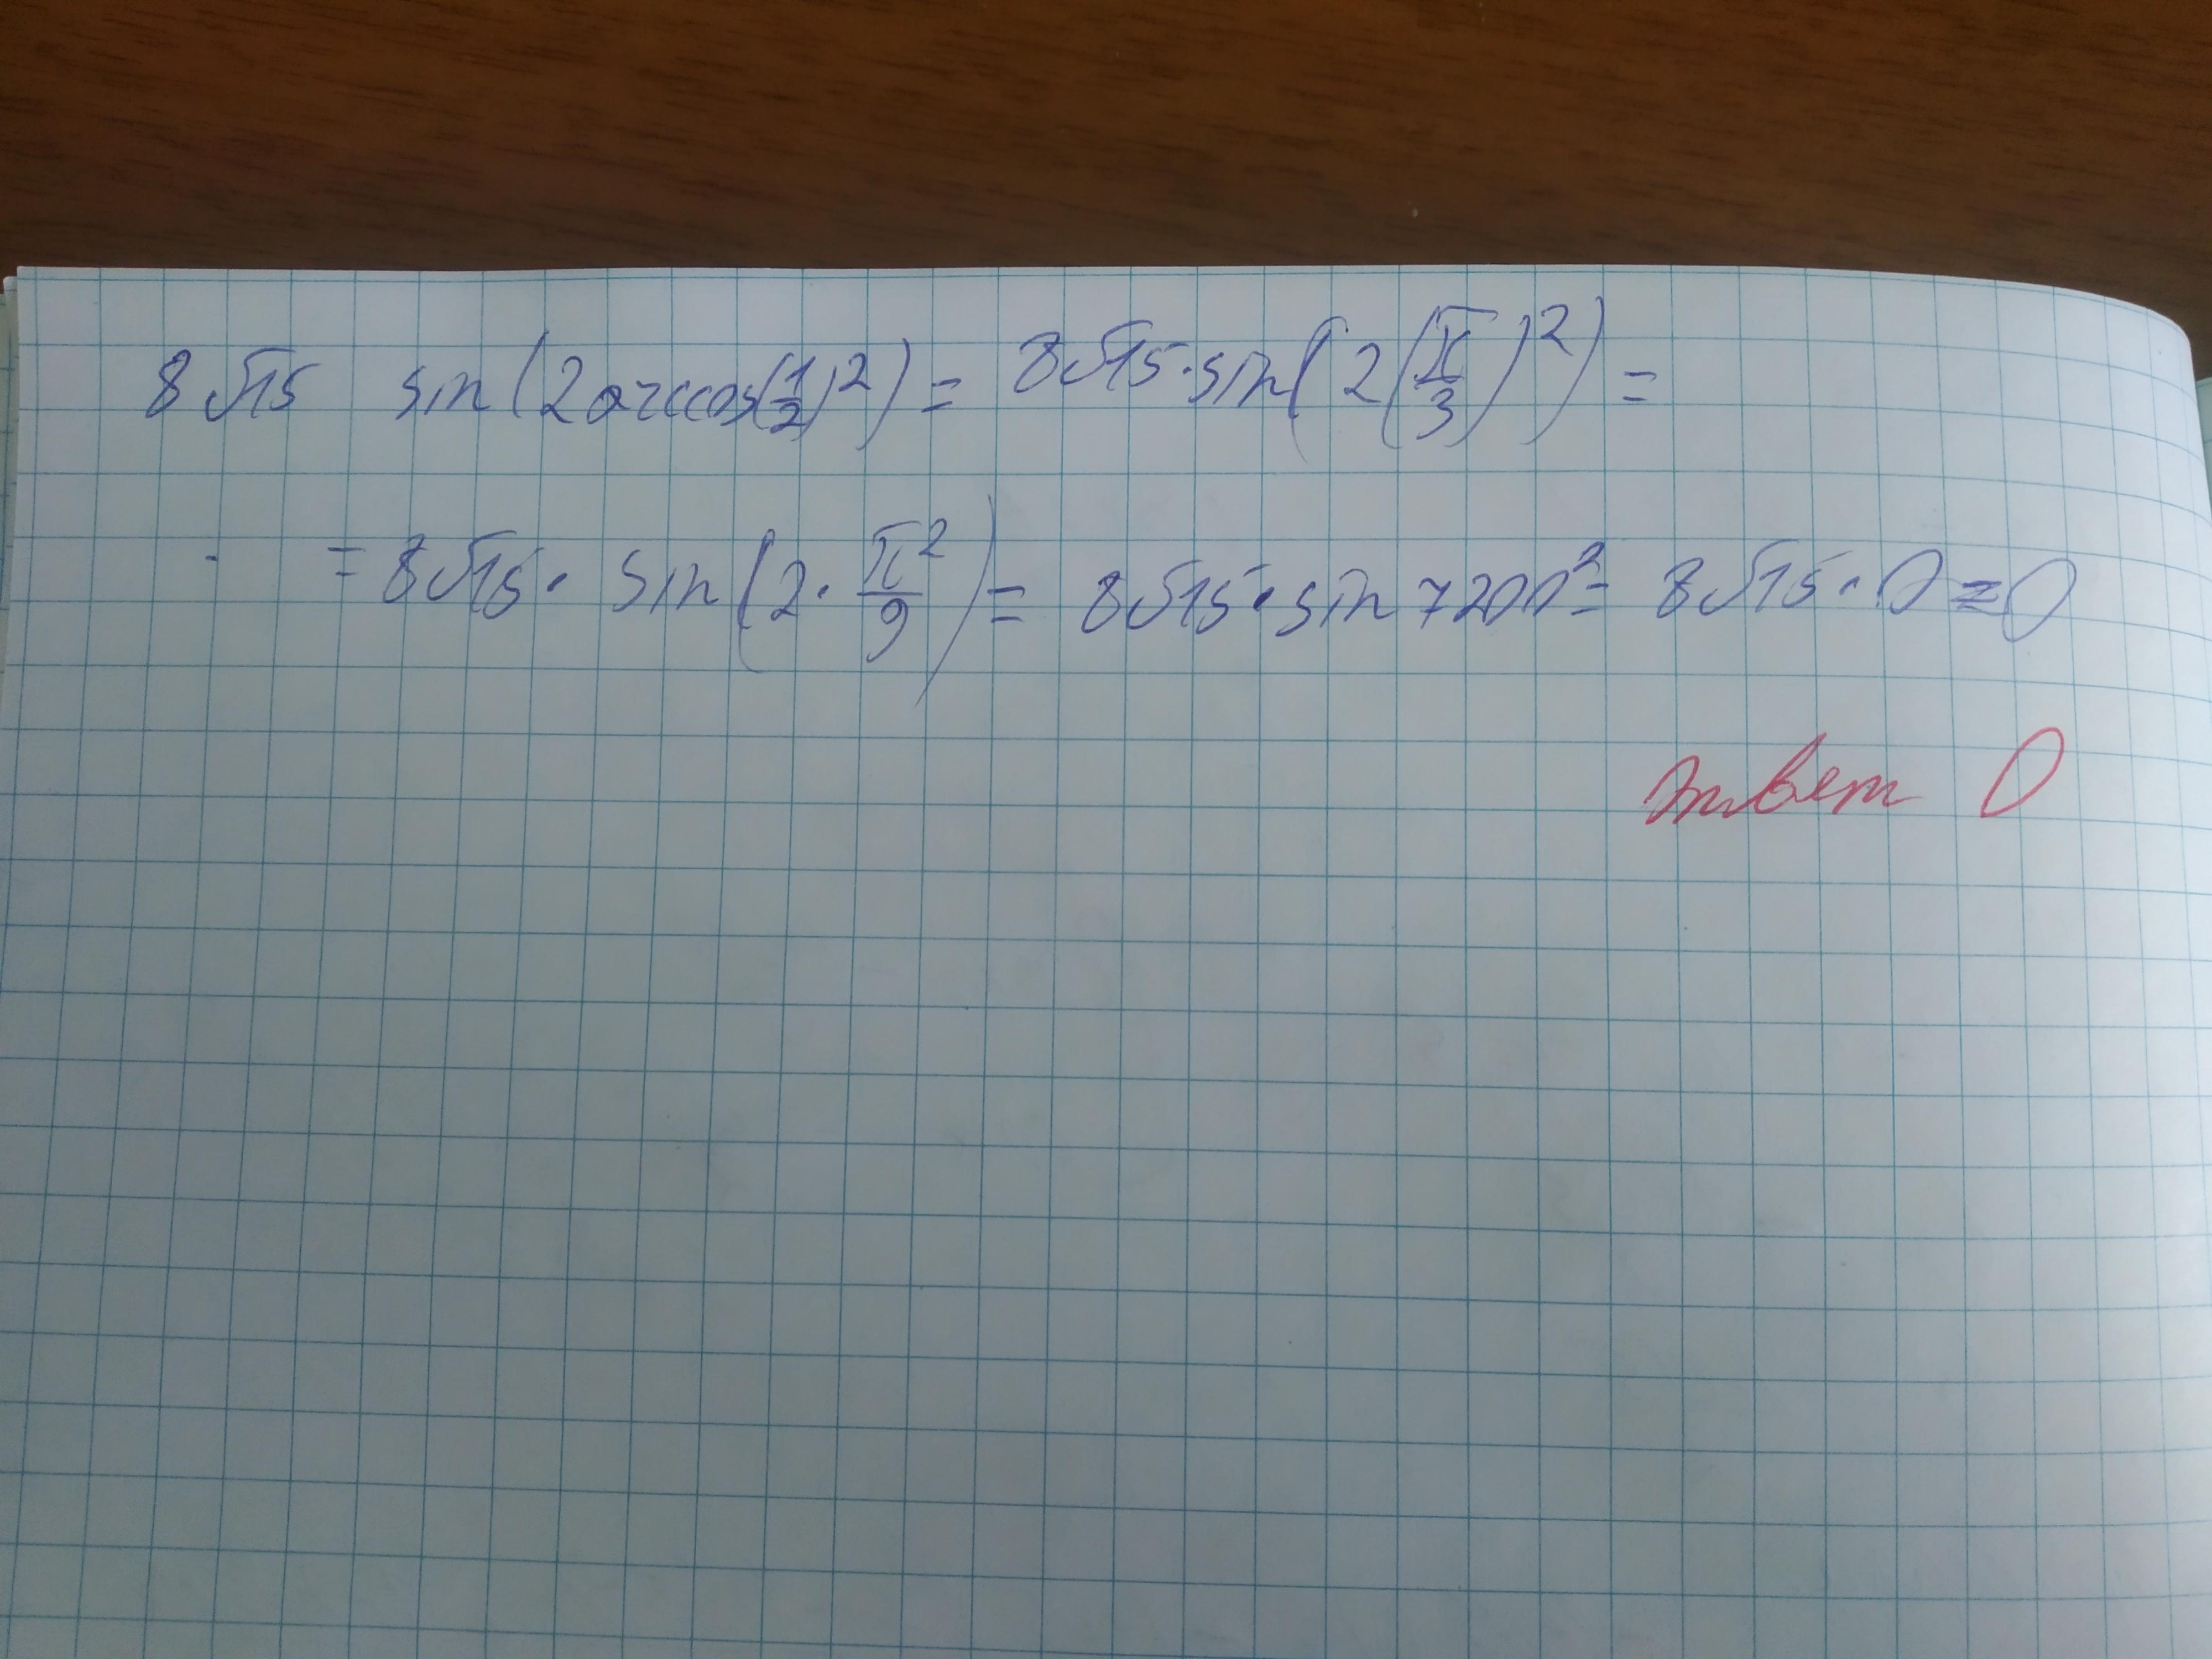 8√15 sin(2arccos(1/2)²) = 8√15·sin(2(π/3)²) =
= 8√15· sin(2·π²/9) = 8√15·sin 7200° = 8√15·0 = 0
ответ 0